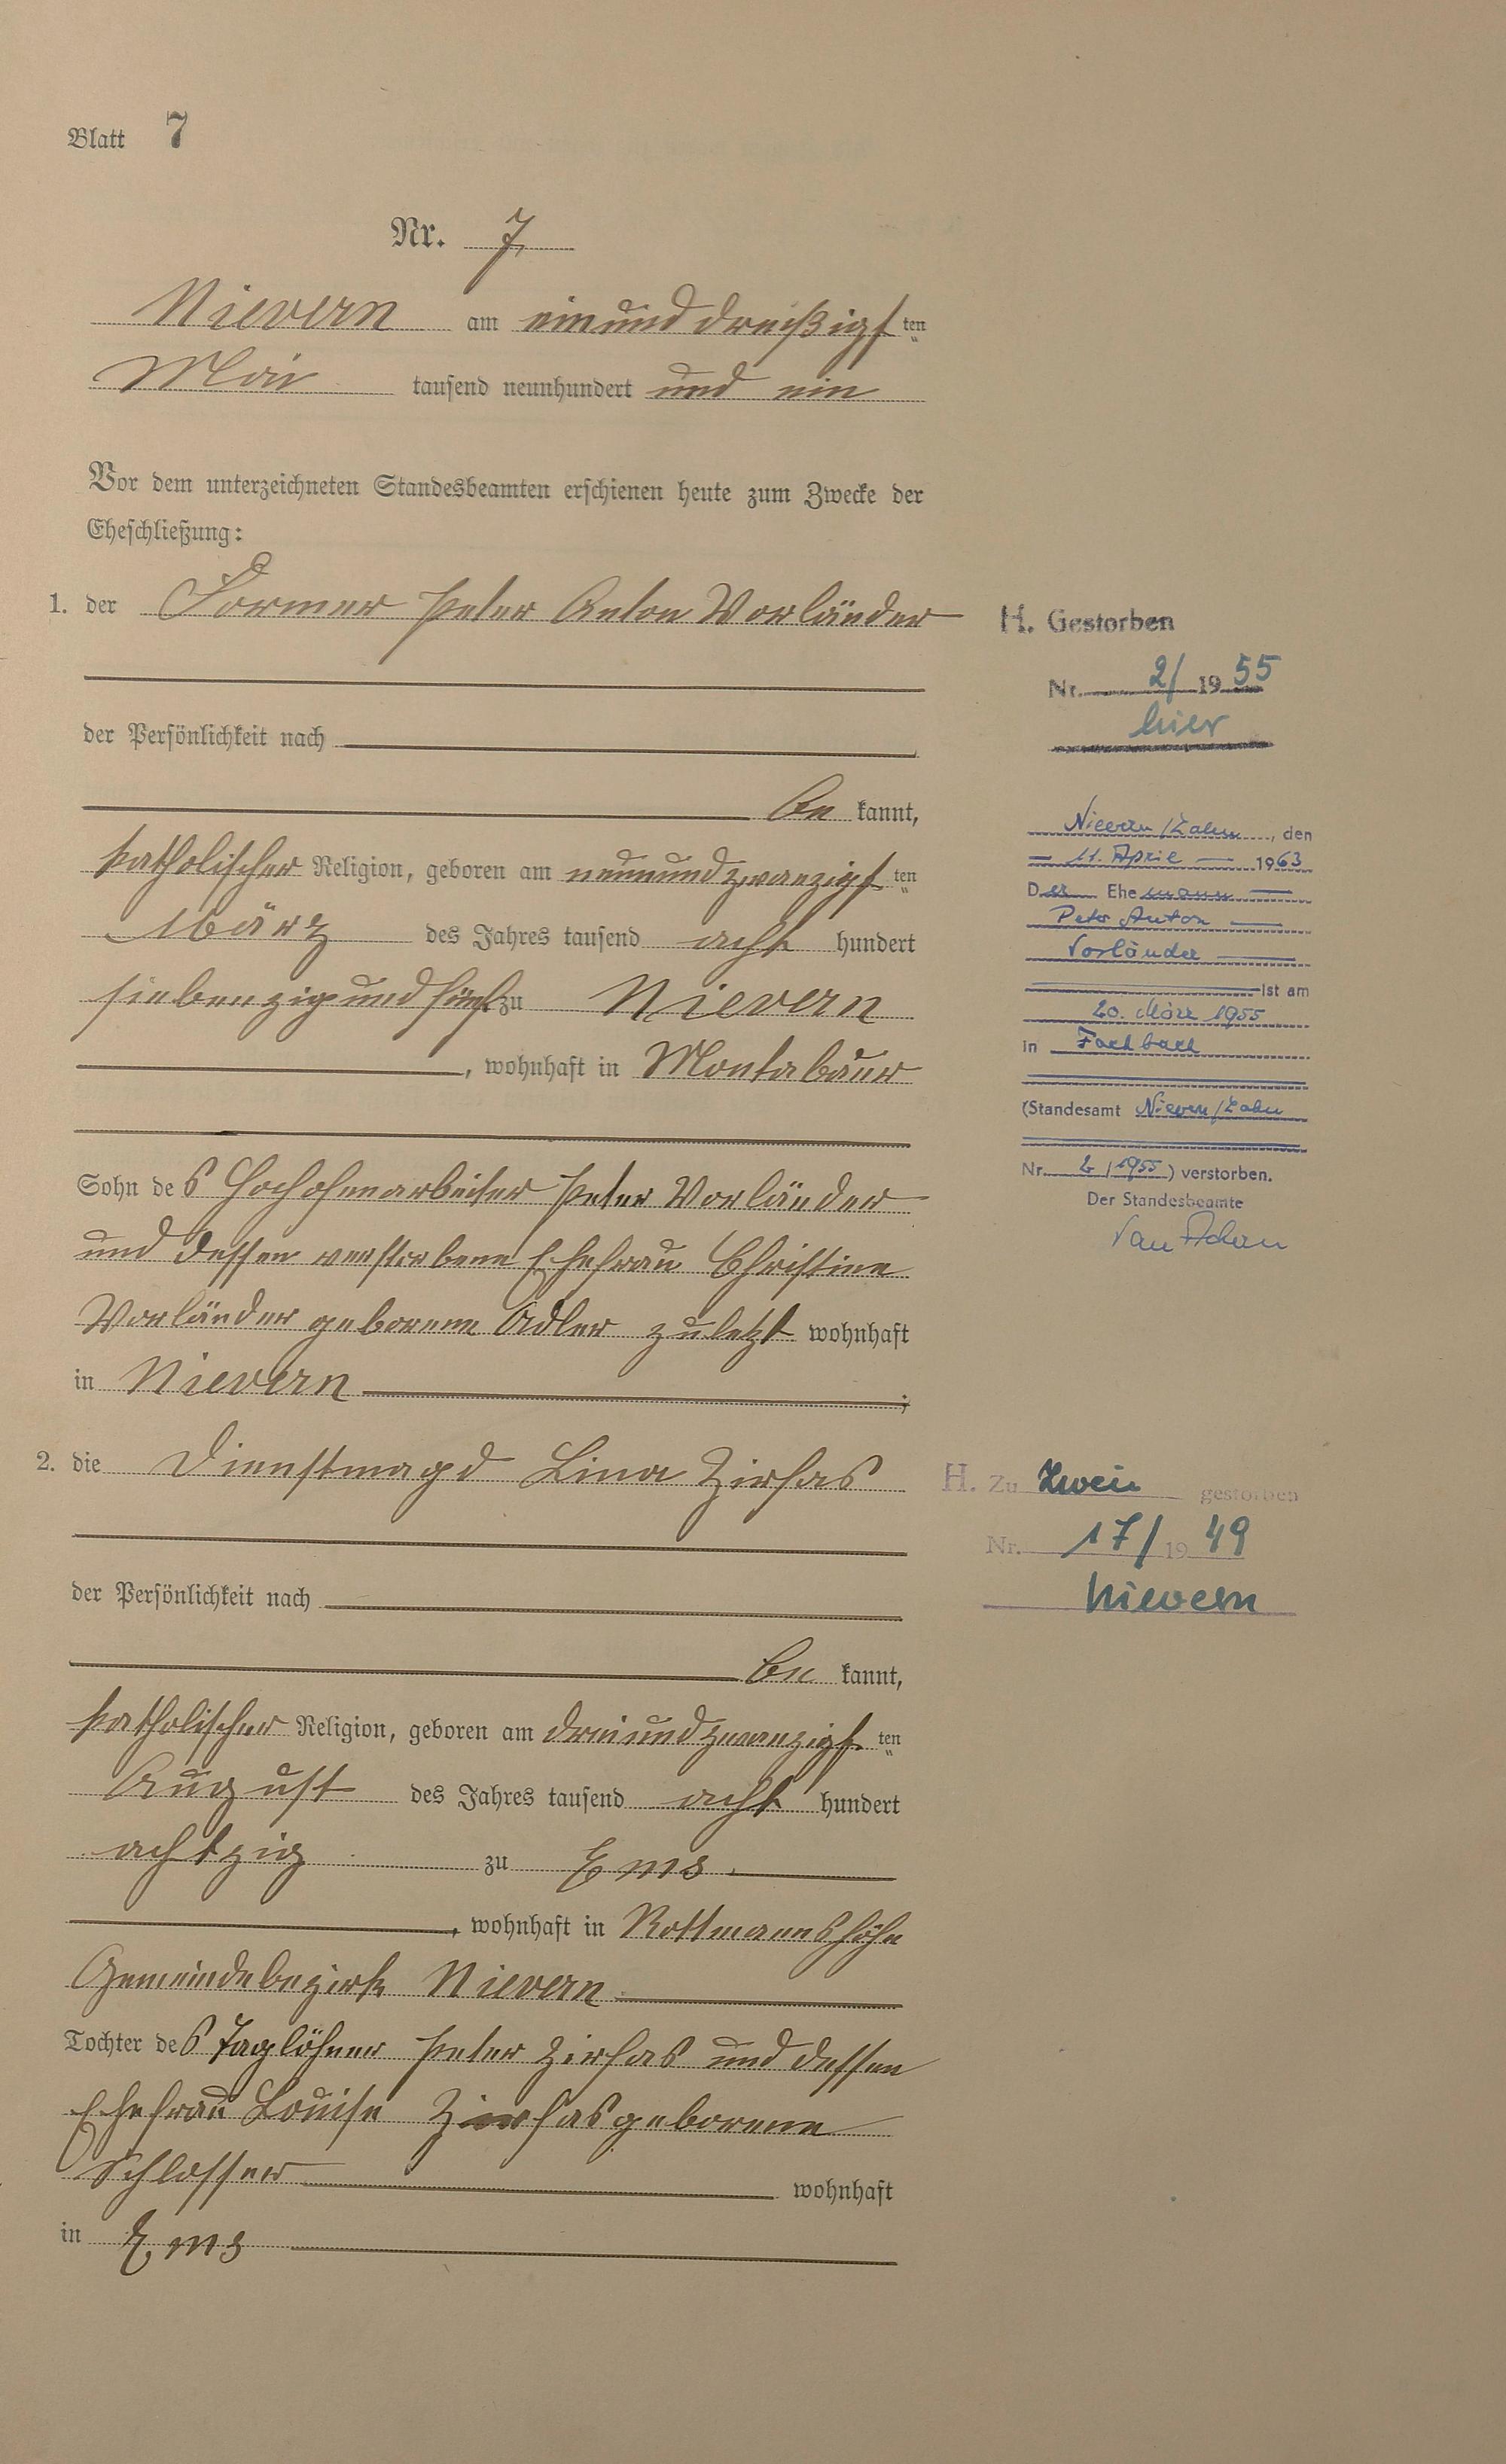 Blatt 7
Nr. 7
Nievern am einunddreißigsten
Mai tausend neunhundert und ein
Vor dem unterzeichneten Standesbeamten erschienen heute zum Zwecke der
Eheschließung:
1. der Former Peter Anton Vorländer
der Persönlichkeit nach
be kannt,
katholischer Religion, geboren am neunundzwanzigsten
März des Jahres tausend acht hundert
siebenzigundfünf zu Nievern
, wohnhaft in Montabaur
Sohn des Hochofenarbeiter Peter Vorländer
und dessen verstorbene Ehefrau Christine
Vorländer geborene Adler zuletzt wohnhaft
in Nievern ;
2. die Dienstmagd Lina Zirfas
der Persönlichkeit nach
be kannt,
katholischer Religion, geboren am dreiundzwanzigsten
August des Jahres tausend acht hundert
achtzig zu Ems
, wohnhaft in Rottmannshöhe
Gemeindebezirk Nievern
Tochter des Taglöhner Peter Zirfas und dessen
Ehefrau Louise Zirfas geborene
Schlosser wohnhaft
in Ems
H. Gestorben
Nr. 2/ 1955
hier
Nievern/Lahn, den
11. April 1963
Der Ehemann
Peter Anton
Vorländer
ist am
20. März 1955
in Fachbach
(Standesamt Nievern/Lahn
Nr. 2/1955) verstorben.
Der Standesbeamte
H. Zu Zwei gestorben
Nr. 17/1949
Nievern